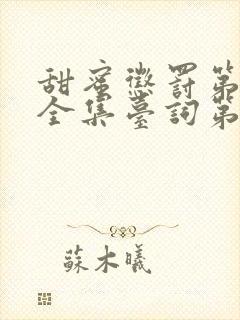 甜蜜懲罰第
全集臺詞第
蘇木曦